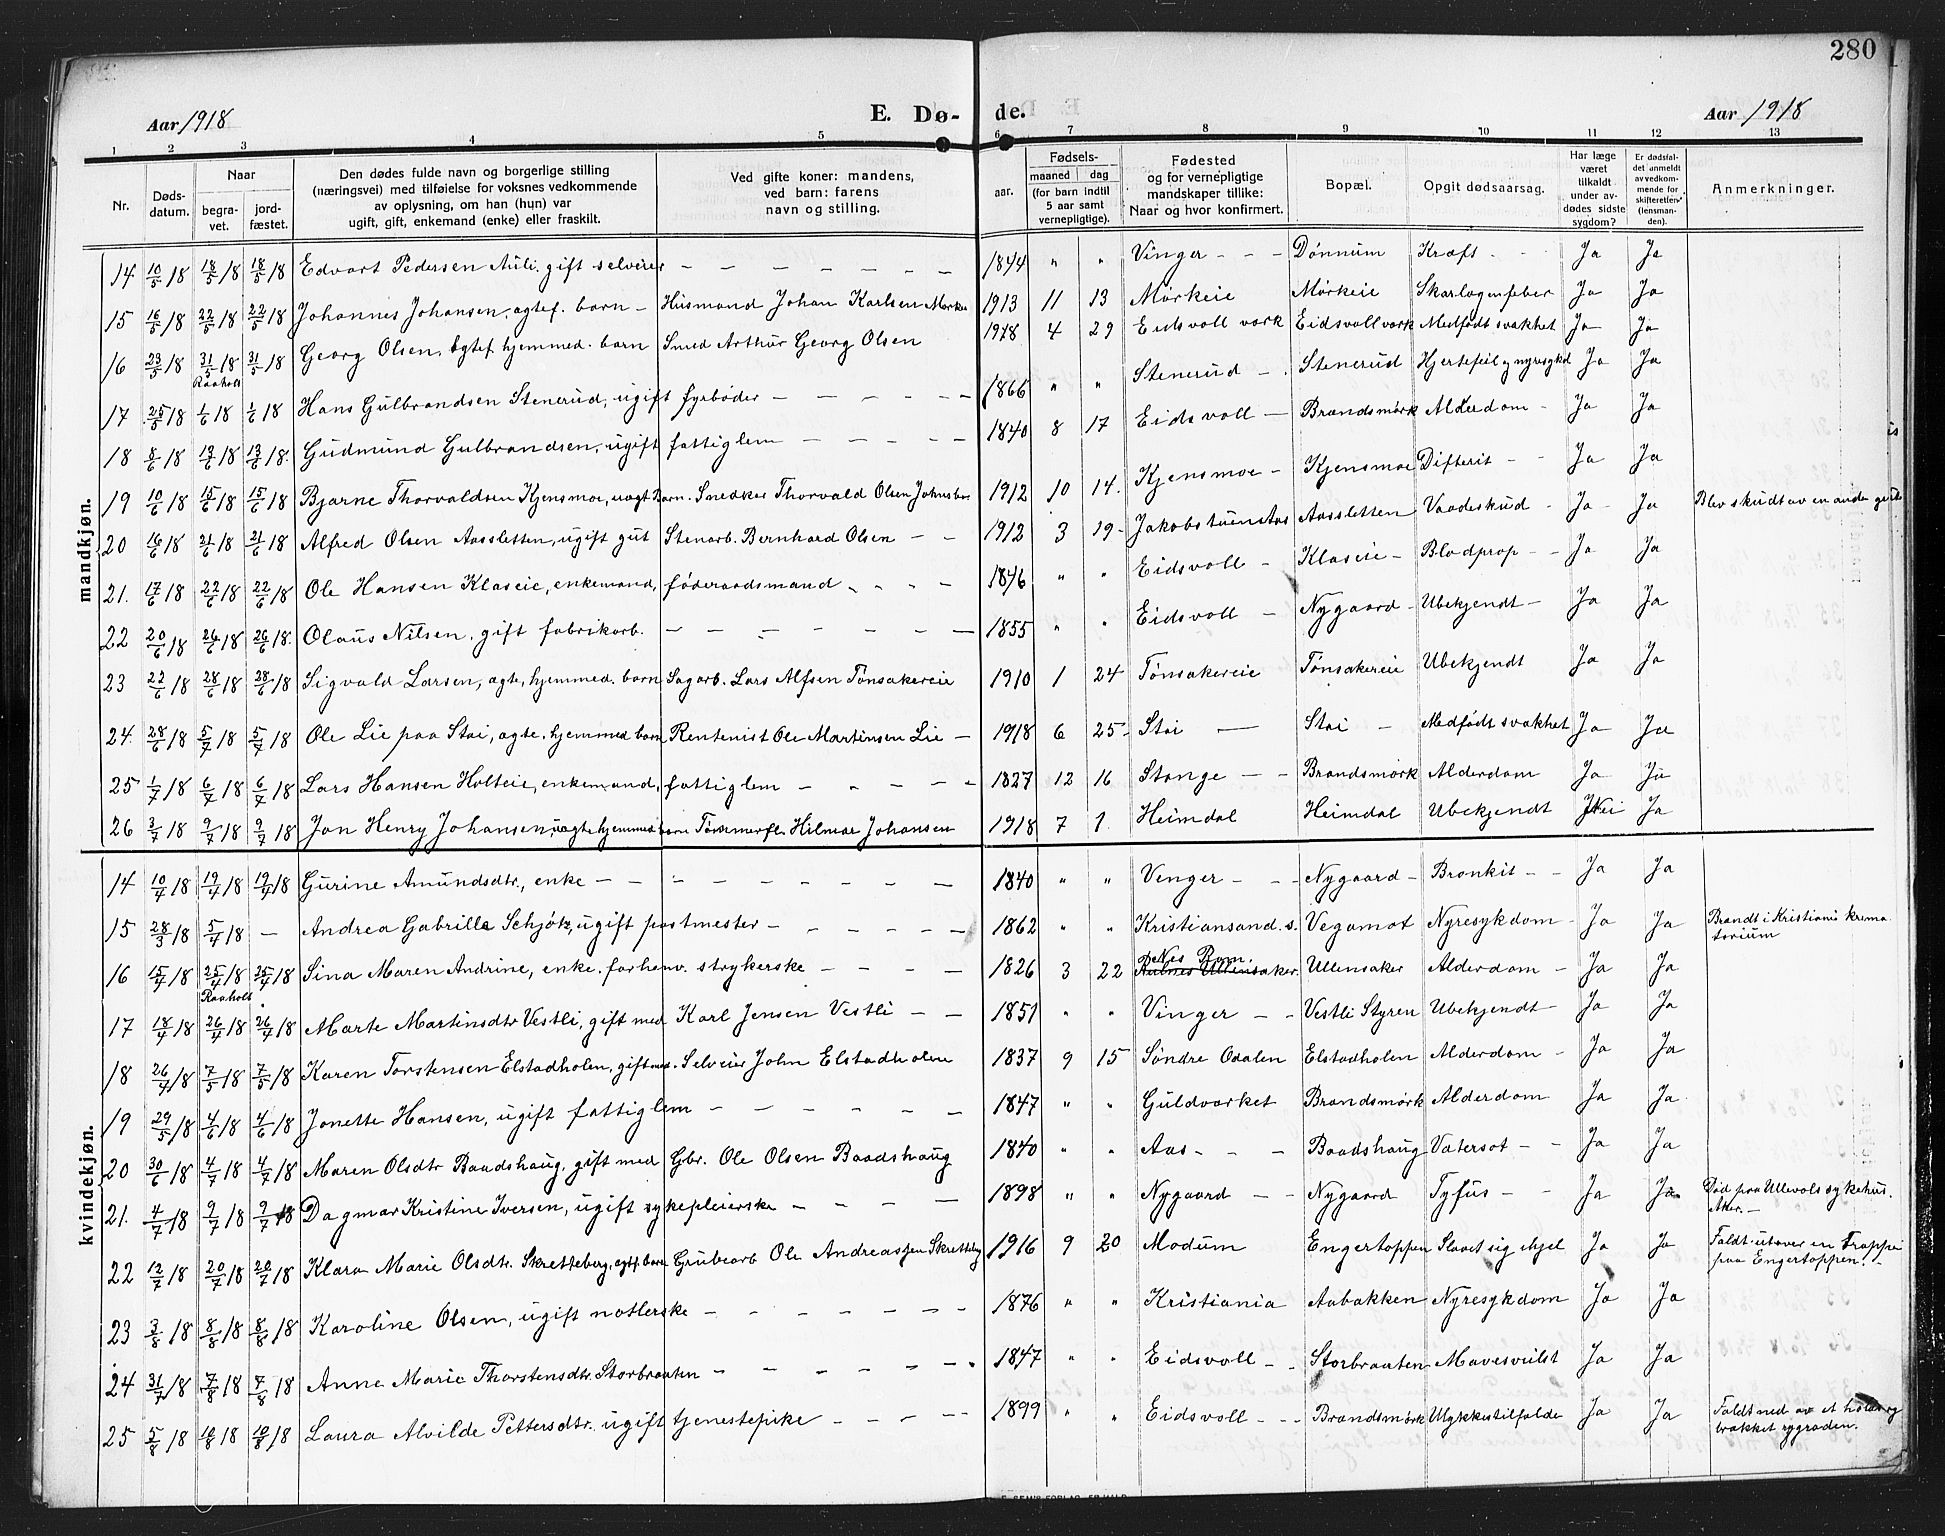 280
Aar 1918 E. Dø- de. Aar 1918
1 2 3 4 5 6 7 8 9 10 11 12 13
Nr. Døds-datum. Naar begra-vet. jord-fæstet. Den dødes fulde navn og borgerlige stilling (næringsvei) med tilføielse for voksnes vedkommende av oplysning, om han (hun) var ugift, gift, enkemand (enke) eller fraskilt. Ved gifte koner: mandens, ved barn: farens navn og stilling. aar. Fødsels- maaned dag (for barn indtil 5 aar samt vernepligtige). Fødested og for vernepligtige mandskaper tillike: Naar og hvor konfirmert. Bopæl. Opgit dødsaarsag. Har læge været tilkaldt under av-dødes sidste sygdom? Er dødsfal-det anmeldt av vedkom-mende for skifteretten (lensman-den). Anmerkninger.
mandkjøn.
14 10/5 18 18/5 18 18/5 18 Edvart Pedersen Auli, gift selveier – – – – – – 1844 " " Vinger – – – Dønnum Kræft – Ja Ja
15 16/5 18 22/5 18 22/5 18 Johannes Johansen, agtef. barn – Husmand Johan Karlsen Mørkeie 1913 11 13 Mørkeie Mørkeie Skarlagenfeber Ja Ja
16 23/5 18 31/5 18 Raaholt 31/5 18 Georg Olsen, egtef. hjemmed. barn Smed Arthur Georg Olsen 1918 4 29 Eidsvoll verk Eidsvoll verk Medfødt svakhet Ja Ja
17 25/5 18 1/6 18 1/6 18 Hans Gulbrandsen Stenerud, ugift fyrbøder – – – – – 1866 " " Stenerud – Stenerud Hjertefeil og nyresykd Ja Ja
18 8/6 18 13/6 18 13/6 18. Gudmund Gulbrandsen, ugift fattiglem – – – – 1840 8 17 Eidsvoll – Brandsmørk Alderdom – Ja Ja
19 10/6 18 15/6 18 15/6 18 Bjarne Thorvaldsen Kjensmoe, uegt. barn. Snedker Thorvald Olsen Johnsbr 1912 10 14. Kjensmoe – Kjensmoe Difterit – – Ja Ja
20 16/6 18 21/6 18 21/6 18 Alfred Olsen Aassletten, ugift gut Stenarb. Bernhard Olsen – – 1912 3 19 – Jakobstuen Aas Aassletten Vaadeskud – Ja – Ja Blev skudt av en anden gut
21. 17/6 18 22/6 18 22/6 18 Ole Hansen Klaseie, enkemand, føderaadsmand – – – – 1846 " " Eidsvoll – Klaseie – Blodprop – – Ja Ja
22 20/6 18 26/6 18 26/6 18. Olaus Nilsen, gift fabrikarb. – – – – – – 1855 " " Eidsvoll – Nygaard – Ubekjendt – Ja Ja
23 22/6 18 28/6 18 28/6 18 Sigvald Larsen, agte, hjemmed. barn Sagarb. Lars Alfsen Tønsakereie 1910 1 24 Tønsakereie Tønsakereie Ubekjendt Ja Ja
24. 28/6 18 5/7 18 5/7 18 Ole Lie paa Stai, agte. hjemmed barn Rentenist Ole Martinsen Lie – 1918 6 25 – Stai – Stai – Medfødt svakhet Ja Ja
25 1/7 18 6/7 18 6/7 18 Lars Hansen Holteie, enkemand, fattiglem – – – – – 1827 12 16 Stange – – Brandsmørk Alderdom Ja Ja
26 3/7 18 9/7 18 9/7 18 Jon Henry Johansen, uagte hjemmed barn Hilmar Johansen 1918 7 1. Heimdal Heimdal Ubekjendt Nei Ja
kvindekjøn.
14 10/4 18 19/4 18 19/4 18 Gurine Amundsdtr, enke – – – – – – – – 1840 " " Venger – – – Nygaard – Bronkit – – Ja Ja
15 28/3 18 5/4 18 – Andrea Gabrille Schjøtz, ugift postmester – – – – – 1862 " " Kristiansand. s. Vegamot Nyresykdom – Ja Ja Brandt i Kristiania krema
torium
16 15/4 18 25/4 18 Raaholt 25/4 18 Sina Maren Andrine, enke. forhenv. strykerske – – – – 1826 3 22 Nes Rom. Ullensaker Alderdom – Ja Ja
17 18/4 18 26/4 18 26/4 18 Marte Martinsdtr Vestli, gift med Karl Jensen Vestli – – 1851 " " Vinger – – Vestli Styren Ubekjendt – Ja Ja
18 26/4 18 7/5 18 7/5 18 Karen Torstensen Elstadholen, gift med. Selveier John Elstadholen 1837 9 15 Søndre Odalen Elstadholen Alderdom – Ja Ja
19 29/5 18 4/6 18 4/6 18 Jonette Hansen, ugift fattiglem – – – – – 1847 " " Guldverket Brandsmørk Alderdom Ja Ja
20 30/6 18 4/7 18 4/7 18 Maren Olsdtr Baadshaug, gift med Gbr. Ole Olsen Baadshaug 1840 " " Aas – – – Baadshaug Vatersot – – Ja Ja
21. 4/7 18 9/7 18 9/7 18 Dagmar Kristine Iversen, ugift sykepleierske – – – 1898 " " Nygaard – – Nygaard Tyfus – – Ja Ja Død paa Ullevols sykehus.
Aker. –
22 12/7 18 20/7 18 20/7 18 Klara Marie Olsdtr. Skretteberg, agtf. barn Grubearb Ole Andreassen Skretteberg 1916 9 20 Modum Engertoppen Slaaet sig ihjel Ja Ja Faldt utover en Trappe
paa Engertoppen. –
23 3/8 18 8/8 18 8/8 18 Karoline Olsen, ugift notlerske – – – – – – 1876 " " Kristiania Aabakken Nyresykdom Ja Ja
24 31/7 18 7/8 18 7/8 18 Anne Marie Thorstensdtr Storbraaten – – – – – 1847 " " Eidsvoll – – Storbraaten Mavesvulst Ja Ja
25 5/8 18 10/8 18 10/8 18 Laura Alvilde Pettersdtr. ugift tjenestepike – – – – 1899 " " Eidsvoll – – Brandsmørk Ulykkestilfælde Ja Ja Faldt ned av et og
brækket rygraden.